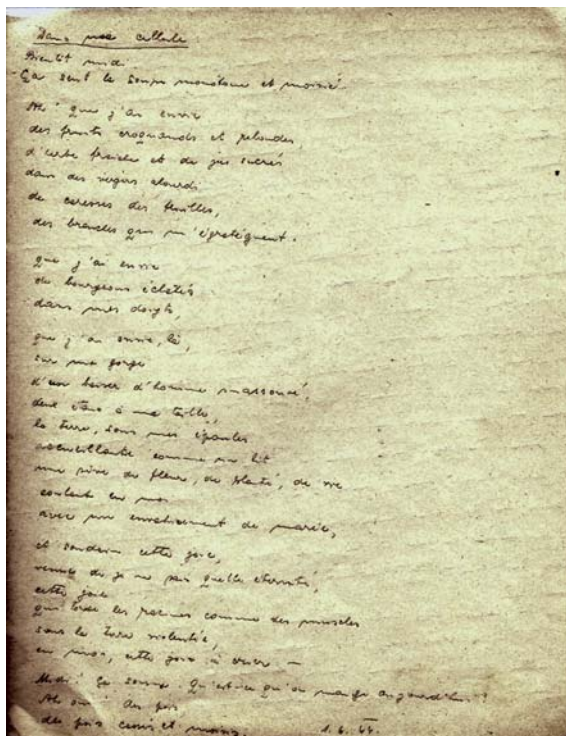 Dans ma cellule
Bientôt midi.
Ça sent la soupe monotone et moisie.
Ah! que j'ai envie
des fruits croquants et
d'herbe fraîche et de jus sucrés
dans des vergers alourdis
de caresses des feuilles,
des branches qui m'égratignent.
que j'ai envie
de bourgeons éclatés
dans mes doigts,
que j'ai envie, là,
sur ma gorge
d'un baiser d'homme
à ma taille,
la terre, sous mes épaules
accueillante comme un lit
une sève de fleur, de de vie
coulant en moi
avec un de marée,
et soudain cette joie,
venue de je ne sais quelle éternité,
cette joie
qui torde les racines comme des muscles
sous la terre violentée,
en moi, cette joie à crier —
Midi! Ça sonne. Qu'est-ce qu'on mange aujourd'hui?
Ah oui! des pois
des pois cassés et moisis.
1.6.44.